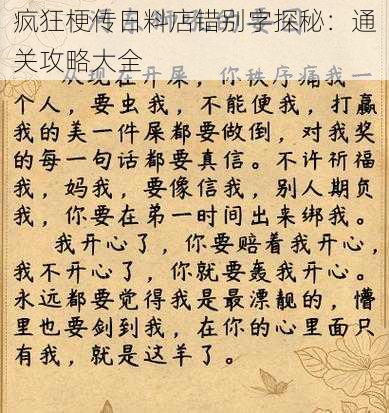 疯狂梗传日料店错别字探秘：通
关攻略大全
从现在开屎，你秩序痛我一
个人，要虫我，不能便我，打赢
我的美一件屎都要做倒，对我奖
的每一句话都要真信。不许祈福
我，妈我，要像信我，别人期负
我，你要在弟一时间出来绑我。
我开心了，你要赔着我开心，
我不开心了，你就要轰我开心。
永远都要觉得我是最漂靓的，懵
里也要剑到我，在你的心里面只
有我，就是这羊了。